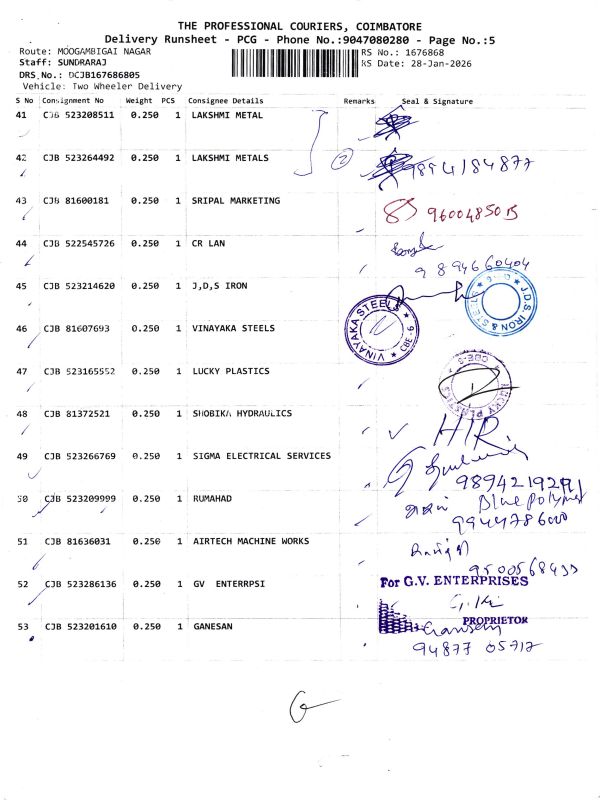 THE PROFESSIONAL COURIERS, COIMBATORE
Delivery Runsheet - PCG - Phone No.:9047080280 - Page No.:5
Route: MOOGAMBIGAI NAGAR RS No.: 1676868
Staff: SUNDRARAJ RS Date: 28-Jan-2026
DRS No.: DCJB167686805
Vehicle: Two Wheeler Delivery
S No Consignment No Weight PCS Consignee Details Remarks Seal & Signature
41 CJB 523208511 0.250 1 LAKSHMI METAL
42 CJB 523264492 0.250 1 LAKSHMI METALS 2 9894184877
43 CJB 81600181 0.250 1 SRIPAL MARKETING
44 CJB 522545726 0.250 1 CR LAN
9894660404
45 CJB 523214620 0.250 1 J,D,S IRON J.D.S. IRON & STEELS
46 CJB 81607693 0.250 1 VINAYAKA STEELS VINAYAKA STEELS CBE-6
47 CJB 523165552 0.250 1 LUCKY PLASTICS LUCKY PLASTICS
48 CJB 81372521 0.250 1 SHOBIKA HYDRAULICS
49 CJB 523266769 0.250 1 SIGMA ELECTRICAL SERVICES
50 CJB 523209999 0.250 1 RUMAHAD Blue Polymer
9944786000
51 CJB 81636031 0.250 1 AIRTECH MACHINE WORKS
52 CJB 523286136 0.250 1 GV ENTERRPSI For G.V. ENTERPRISES
PROPRIETOR
53 CJB 523201610 0.250 1 GANESAN Ganesan
94877 05712